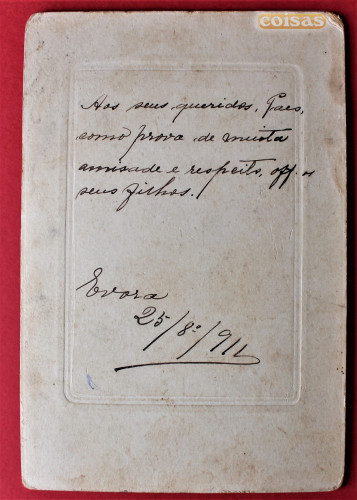 coisas
Aos seus queridos, Paes,
como prova de muita
amisade e respeito, off. os
seus filhos.
Evora
25/8º/911